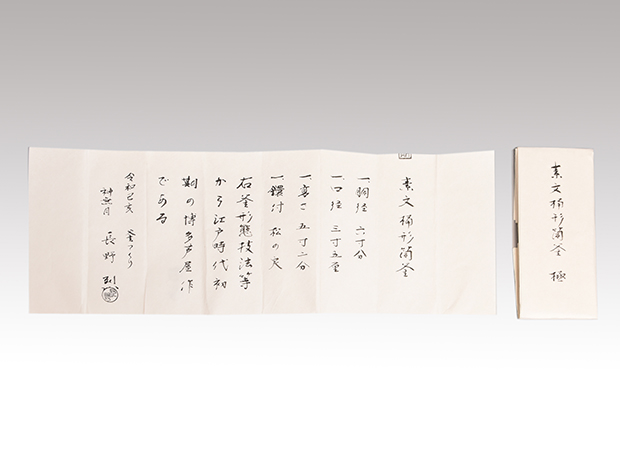 素文桶形筒釜
一胴径 六寸分
一口径 三寸五分
一高さ 五寸二分
一鐶付 松の実
右釜形態技法等
から江戸時代初
期の博多芦屋作
である
令和己亥 釜つくり
神無月 長野 烈
素文桶形筒釜 極